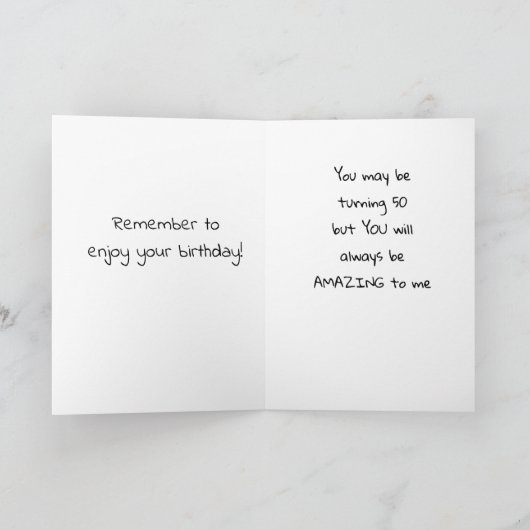 Remember to
enjoy your birthday!
You may be
turning 50
but YOU will
always be
AMAZING to me